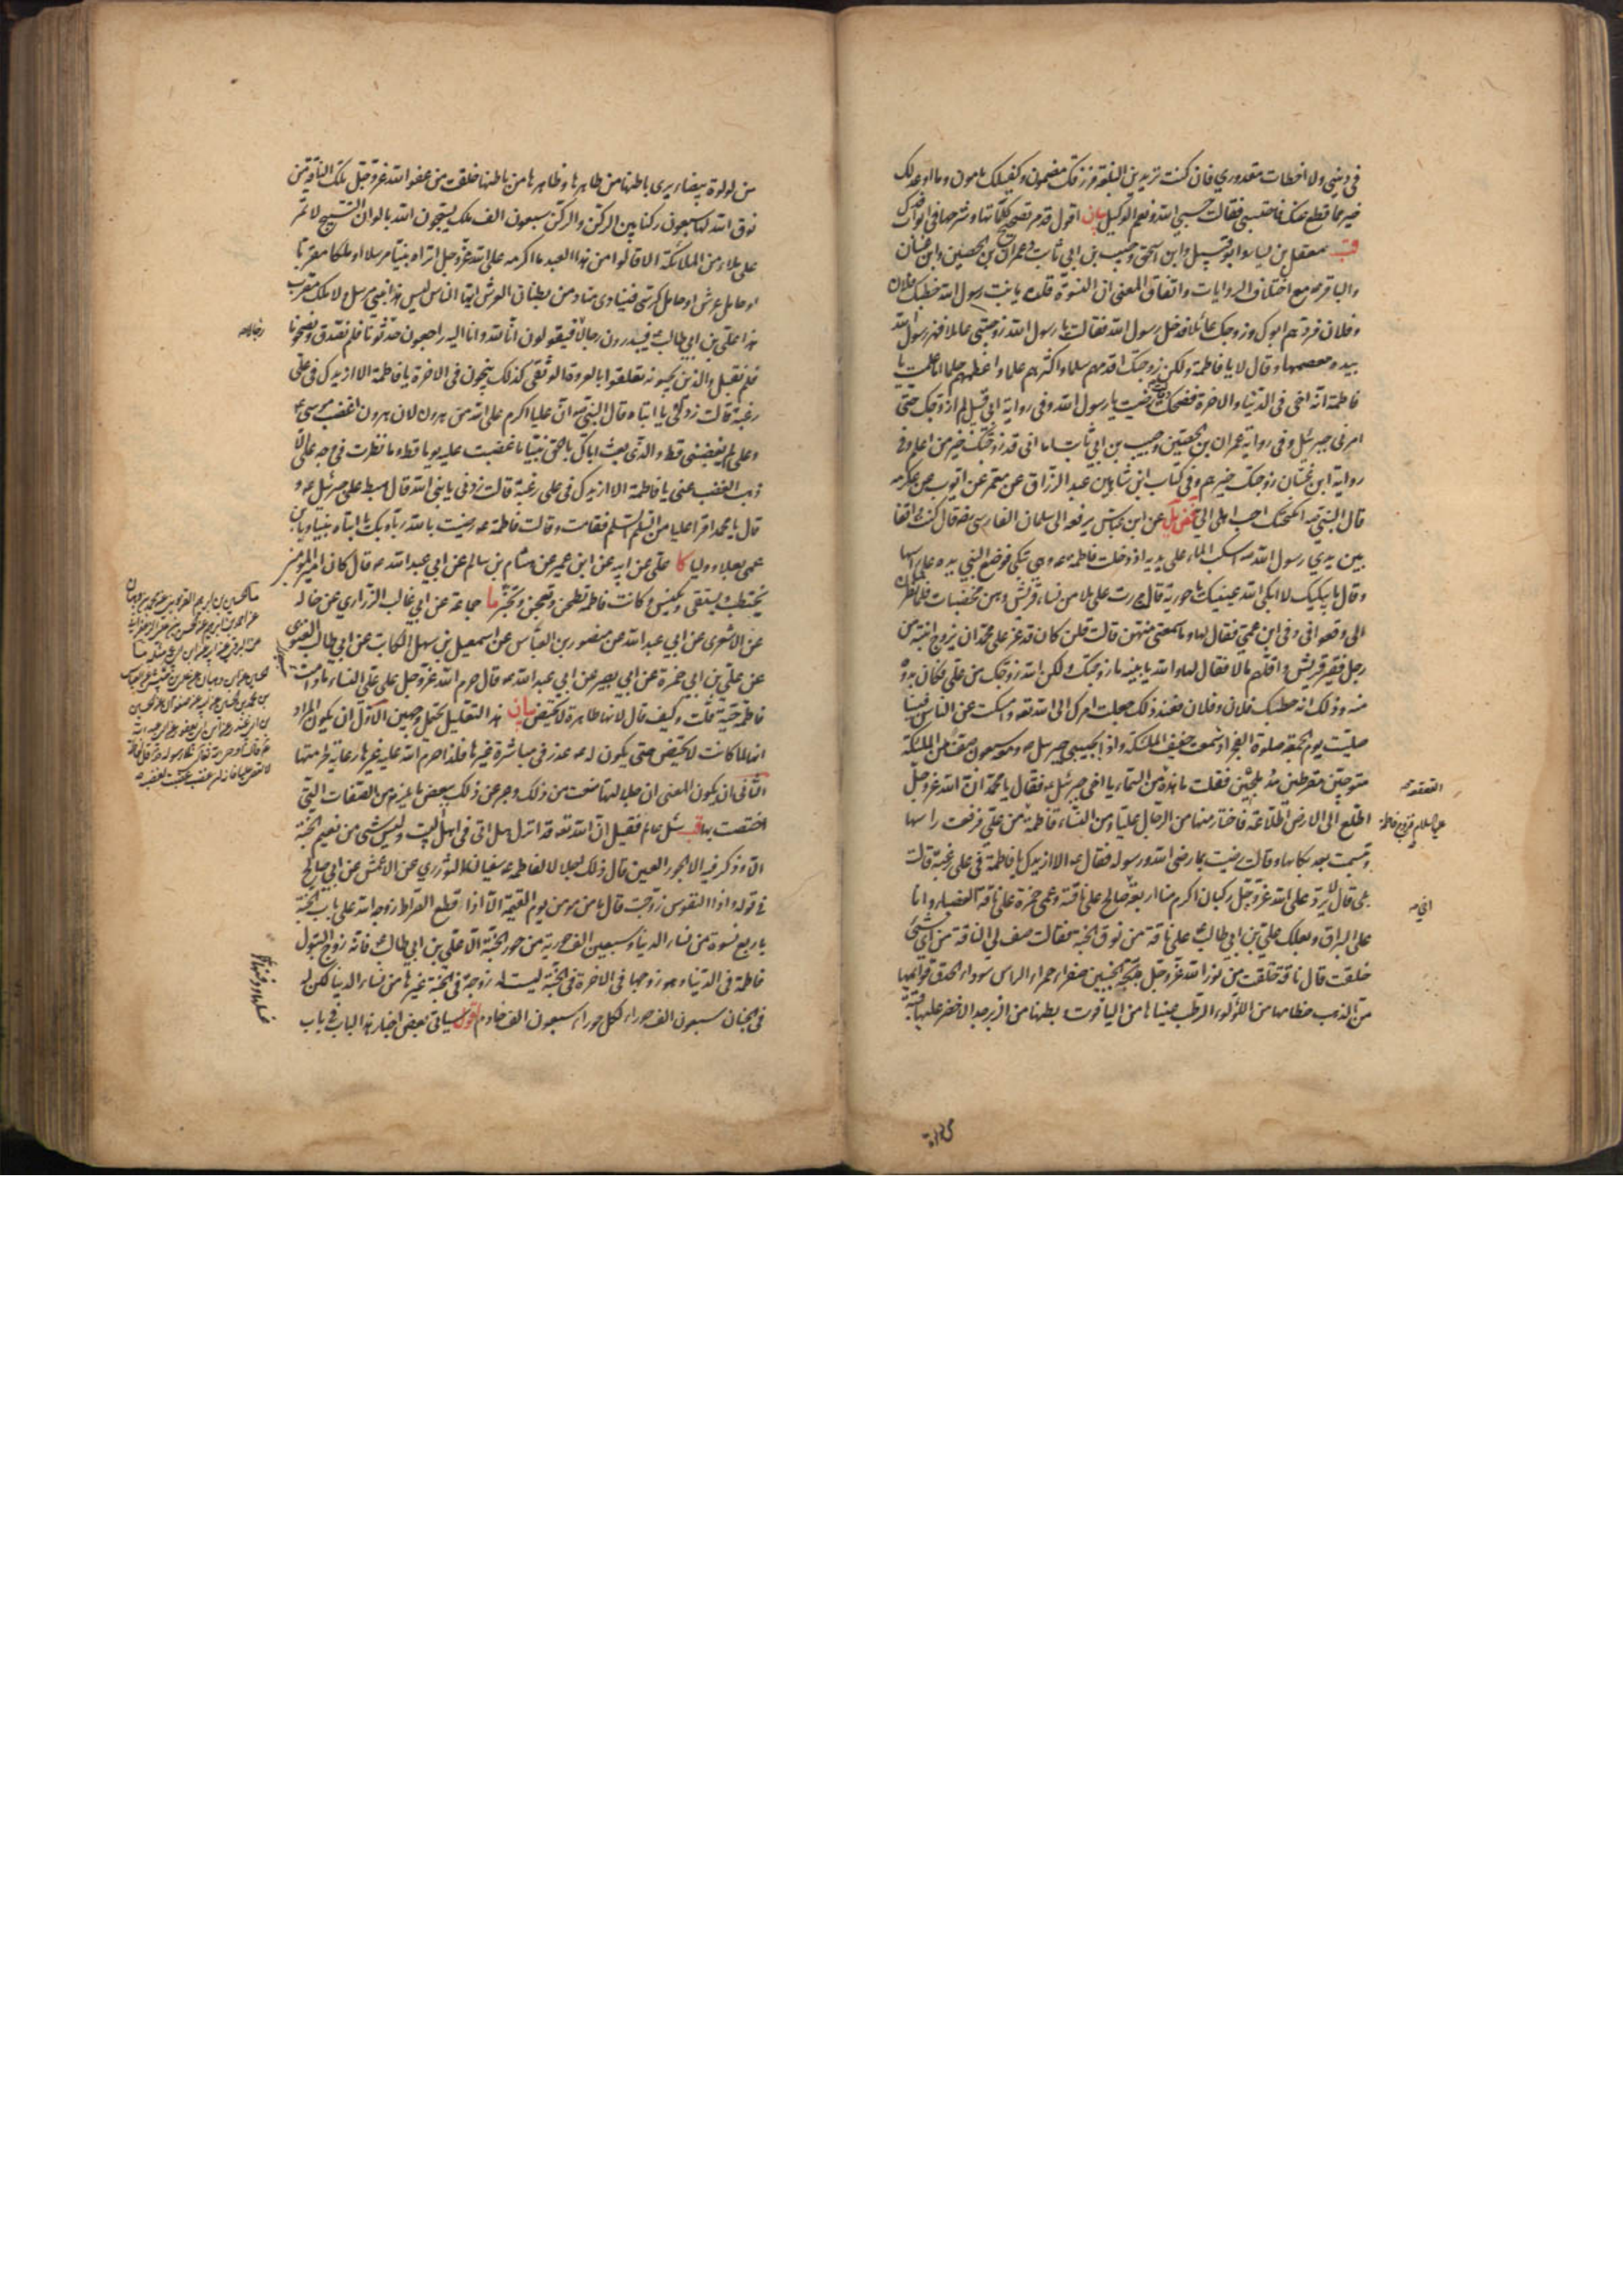 في ديني ولا اخطات مقدوري فان كنت تريدين البلغة فرزقك مضمون وكفيلك مامون وما اعد لك
خير مما قطع عنك فاحتسبي فقالت حسبي الله ونعم الوكيل بيان اقول قد مر تصحيح كلماتها وشرحها في ابواب فدك
قب معقل بن يسار وابو قبيل وابن اسحق وحبيب بن ابي ثابت وعمران بن الحصين وابن غسان
والباقر مع اختلاف الروايات واتفاق المعنى ان النسوة قلن يا بنت رسول الله خطبك فلان
وفلان فردهم ابوك وزوجك عائلا فدخل رسول الله فقالت يا رسول الله زوجتني عائلا فهز رسول الله
بيده معصمها وقال لا يا فاطمة ولكن زوجتك اقدمهم سلما واكثرهم علما واعظمهم حلما اما علمت يا
فاطمة انه اخي في الدنيا والاخرة فضحكت وقالت رضيت يا رسول الله وفي رواية ابي قبيل لم ازوجك حتى
امرني جبرئيل وفي رواية عمران بن الحصين وحبيب بن ابي ثابت اما اني قد زوجتك خير من اعلم وفي
رواية ابن غسان زوجتك خيرهم وفي كتاب ابن شاهين عبد الرزاق عن معمر عن ايوب عن عكرمة
قال النبي انكحتك احب اهلي الي عن ابن عباس يرفعه الى سلمان الفارسي قال كنت واقفا
بين يدي رسول الله اسكب الماء على يديه اذ دخلت فاطمة وهي تبكي فوضع النبي يده على راسها
وقال ما يبكيك لا ابكى الله عينيك يا حورية قالت مررت على ملا من نساء قريش وهن مخضبات فلما نظرن
الي وقعوا في وفي ابن عمي فقال لها وما سمعتي منهن قالت قلن كان قد عز على محمد ان يزوج ابنته من
رجل فقير قريش واقلهم مالا فقال لها والله يا بنية ما زوجتك ولكن الله زوجك من علي فكان بدوه
منه وذلك انه خطبك فلان وفلان فعند ذلك جعلت امرك الى الله تعالى وامسكت عن الناس فبينا
صليت يوم الجمعة صلوة الفجر اذ سمعت حفيف الملئكة واذا بحبيبي جبرئيل ومعه سبعون صفا من الملئكة
متوجين مقرطين مدملجين فقلت ما هذه من السماء يا اخي جبرئيل فقال يا محمد ان الله عز وجل
اطلع الى الارض اطلاعة فاختار منها من الرجال عليا ومن النساء فاطمة من علي فرفعت راسها
وتبسمت بعد بكائها وقالت رضيت بما رضي الله ورسوله فقال الا ازيدك يا فاطمة في علي رغبة قالت
بلى قال لا يرد على الله عز وجل ركبان اكرم منا اربعة صالح على ناقته وعمي حمزة على ناقة العضباء وانا
على البراق وبعلك علي بن ابي طالب على ناقة من نوق الجنة فقالت صف لي الناقة من اي شيء
خلقت قال ناقة خلقت من نور الله عز وجل مدبجة الجنبين صفراء حمراء الراس سوداء الحدق قوائمها
من الذهب خطامها من اللؤلؤ الرطب عيناها من الياقوت وبطنها من الزبرجد الاخضر عليها قبة
القعقعة
عليه السلام فزوج فاطمة
اخي
من لؤلؤة بيضاء يرى باطنها من ظاهرها وظاهرها من باطنها خلقت من عفو الله عز وجل تلك الناقة من
نوق الله لها سبعون ركنا بين الركن والركن سبعون الف ملك يسبحون الله بالوان التسبيح لا تمر
على ملاء من الملائكة الا قالوا من هذا العبد ما اكرمه على الله عز وجل اتراه نبيا مرسلا او ملكا مقربا
او حامل عرش او حامل كرسي فينادي مناد من بطنان العرش ايها الناس ليس هذا بنبي مرسل ولا ملك مقرب
هذا علي بن ابي طالب فيبدرون رجالا فيقولون انا لله وانا اليه راجعون حدثونا فلم نصدق ونصحونا
فلم نقبل والذين يحبونه تعلقوا بالعروة الوثقى كذلك ينجون في الاخرة يا فاطمة الا ازيدك في علي
رغبة قالت زدني يا ابتاه قال النبي ان عليا اكرم على الله من هرون لان هرون اغضب موسى
وعلي لم يغضبني قط والذي بعث اباك بالحق نبيا ما غضبت عليه يوما قط وما نظرت في وجه علي الا
ذهب الغضب عني يا فاطمة الا ازيدك في علي رغبة قالت زدني يا نبي الله قال هبط علي جبرئيل و
قال يا محمد اقرا عليا من السلام السلام فقامت وقالت فاطمة رضيت بالله ربا وبك يا ابتاه نبيا وبابن
عمي بعلا ووليا كا علي عن ابيه عن ابن عمير عن هشام بن سالم عن ابي عبد الله قال كان امير المؤمنين
يحتطب ويستقي ويكنس وكانت فاطمة تطحن وتعجن وتخبز ما جماعة عن ابي غالب الزراري عن خاله
عن الاشعري عن ابي عبد الله عن منصور بن العباس عن اسمعيل بن سهل الكاتب عن ابي طالب الغنوي
عن علي بن ابي حمزة عن ابي بصير عن ابي عبد الله قال حرم الله عز وجل على علي النساء ما دامت
فاطمة حية قلت وكيف قال لانها طاهرة لا تحيض بيان هذا التعليل يحتمل وجهين الاول ان يكون المراد
انها لما كانت لا تحيض حتى يكون له عذر في مباشرة غيرها فلذا حرم الله عليه غيرها رعاية لحرمتها
الثاني ان يكون المعنى ان جلالتها منعت من ذلك وعبر عن ذلك ببعض ما يلزمه من الصفات التي
اختصت بها قب سئل عالم فقيل ان الله تعالى قد انزل هل اتى في اهل البيت وليس شيء من نعيم الجنة
الا وذكر فيه الا الحور العين قال ذلك اجلالا لفاطمة سفيان الثوري عن الاعمش عن ابي صالح
في قوله واذا النفوس زوجت قال ما من مؤمن يوم القيمة الا اذا قطع الصراط زوجه الله على باب الجنة
باربع نسوة من نساء الدنيا وسبعين الف حورية من حور الجنة الا علي بن ابي طالب فانه زوج البتول
فاطمة في الدنيا وهو زوجها في الاخرة في الجنة ليست له زوجة في الجنة غيرها من نساء الدنيا لكن له
في الجنان سبعون الف حوراء لكل حوراء سبعون الف خادم اقول سياتي بعض اخبار هذا الباب في باب